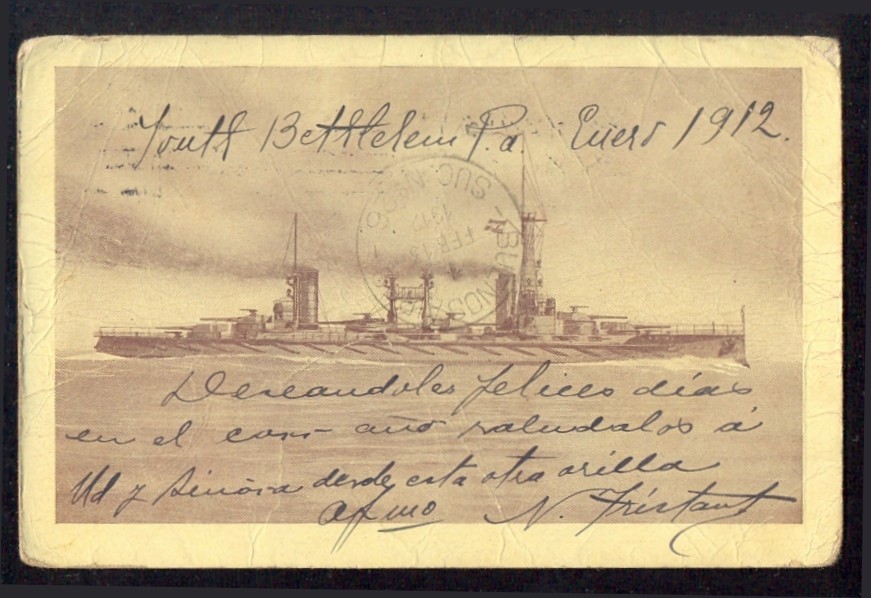 South Bethlehem Pa. Enero 1912.
SUC. Nº 26
1912
FEB 13
BUENOS AI
Deseandoles felices días
en el corr- año saludalos á
Ud y Sinóra desde esta otra orilla
afmo N. Tristant